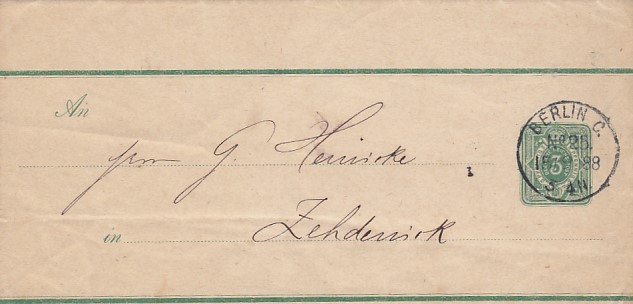 An
Herrn G. Heinicke
in Zehdenick
BERLIN C.
No 25.
88
3